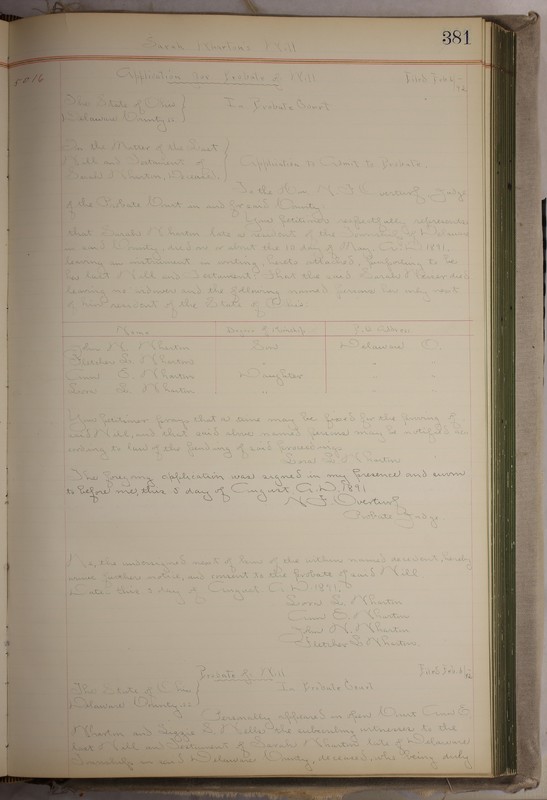 381
Sarah Wharton's Will
5016
Application for Probate of Will
The State of Ohio
Delaware County ss
In Probate Court
In the Matter of the Last
Will and Testament of
Sarah Wharton, Deceased.
Application to Admit to Probate.
To the Hon. N. F. Overturf, Judge
of the Probate Court in and for said County:
Your Petitioner respectfully represents
that Sarah Wharton late a resident of the Township of Delaware
in said County, died on or about the day of May, A.D. 1891,
leaving an instrument in writing, hereto attached, purporting to be
her last Will and Testament; That the said Sarah Wharton died
leaving no widower and the following named persons her only next
of kin resident of the State of Ohio
Name Degree of Kinship P.O. Address
John W. Wharton Son Delaware O.
Fletcher S. Wharton " " "
E. Wharton Daughter " "
L. Wharton " " "
Your Petitioner prays that a time may be fixed for the proving of
said Will, and that said above named persons may be notified ac-
cording to law of the pending of said proceedings.
L. Wharton
The foregoing application was signed in my presence and sworn
to before me, this 5 day of August A.D. 1891
N. F. Overturf
Probate Judge
We, the undersigned next of kin of the within named decedent, hereby
waive further notice, and consent to the probate of said Will
Dated this 5 day of August A.D. 1891.
L. Wharton
E. Wharton
John W. Wharton
Fletcher S. Wharton.
Probate of Will
The State of Ohio
Delaware County ss
In Probate Court
Personally appeared in open Court
Wharton and the subscribing witnesses to the
last Will and Testament of Sarah Wharton late of Delaware
Township in said Delaware County, deceased, who being duly